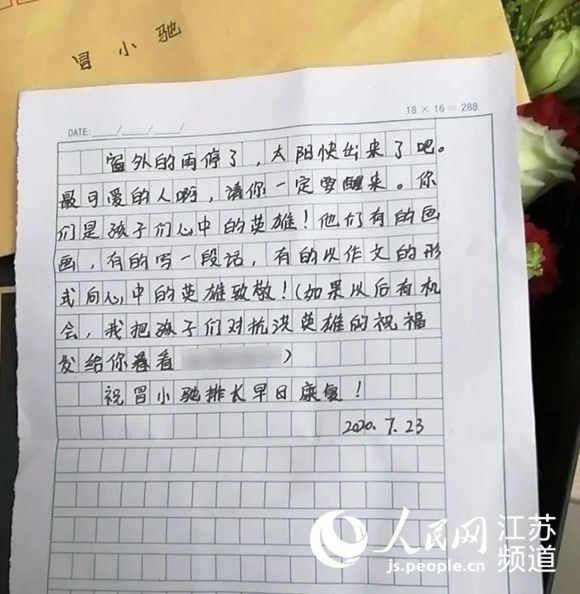 冒小驰
18 × 16 = 288
DATE: / / /
窗外的雨停了，太阳快出来了吧。
最可爱的人啊，请你一定要醒来。你
们是孩子们心中的英雄！他们有的画
画，有的写一段话，有的以作文的形
式向心中的英雄致敬！（如果以后有机
会，我把孩子们对抗洪英雄的祝福
发给你看看 ）
祝冒小驰排长早日康复！
2020.7.23
人民网 江苏频道
js.people.cn